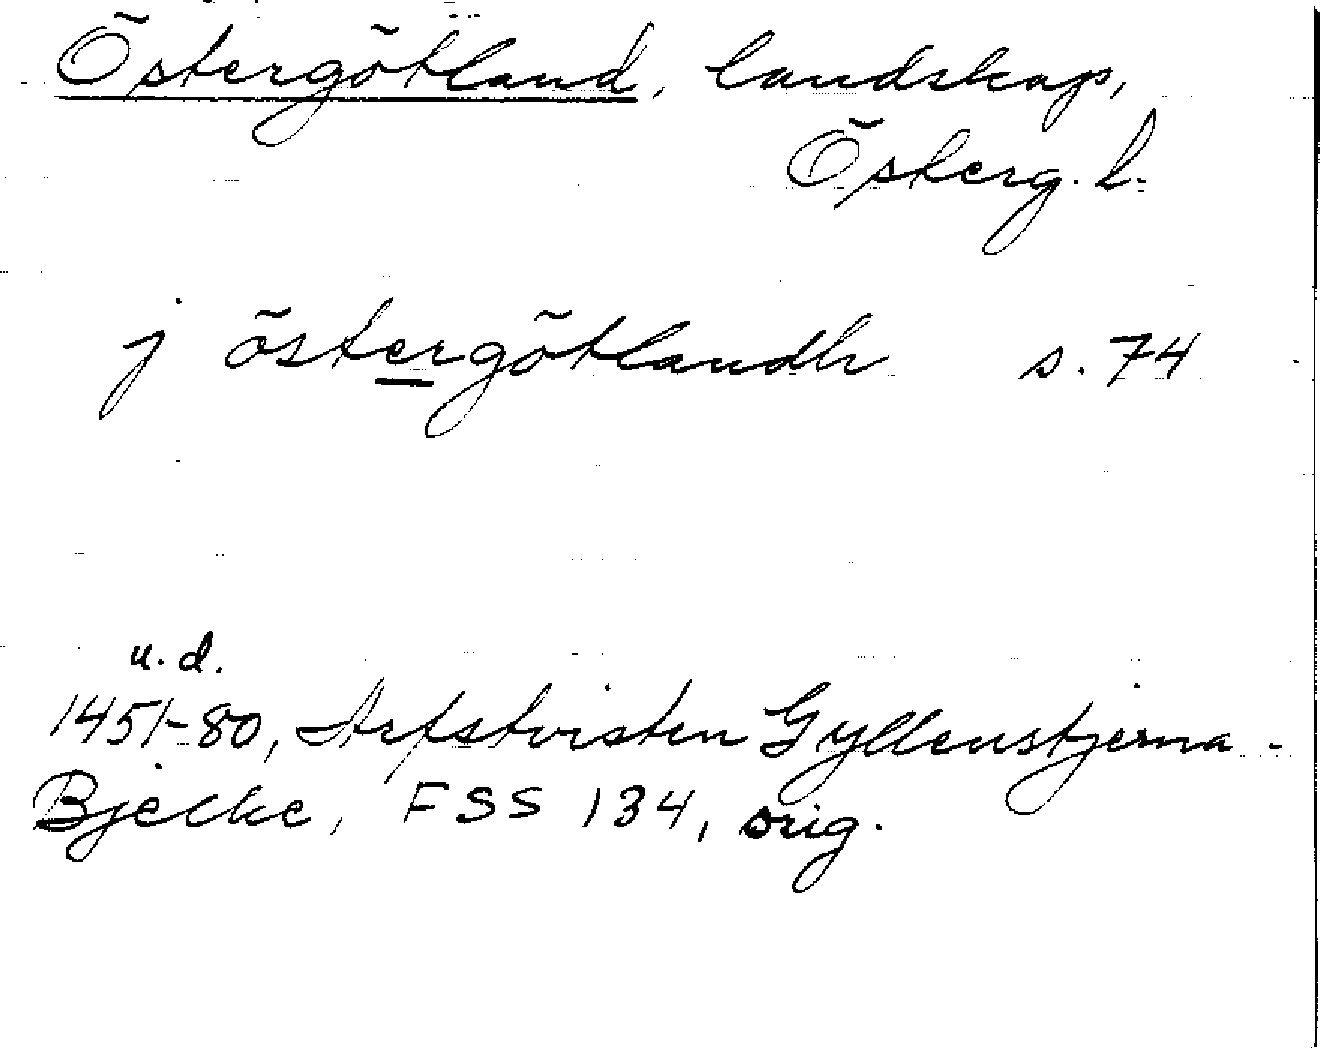 Östergötland, landskap,
Österg. l.
j östergötlandh s. 74
u. d.
1451-80, Arfstvisten Gyllenstjerna-
Bjelke, FSS 134, orig.